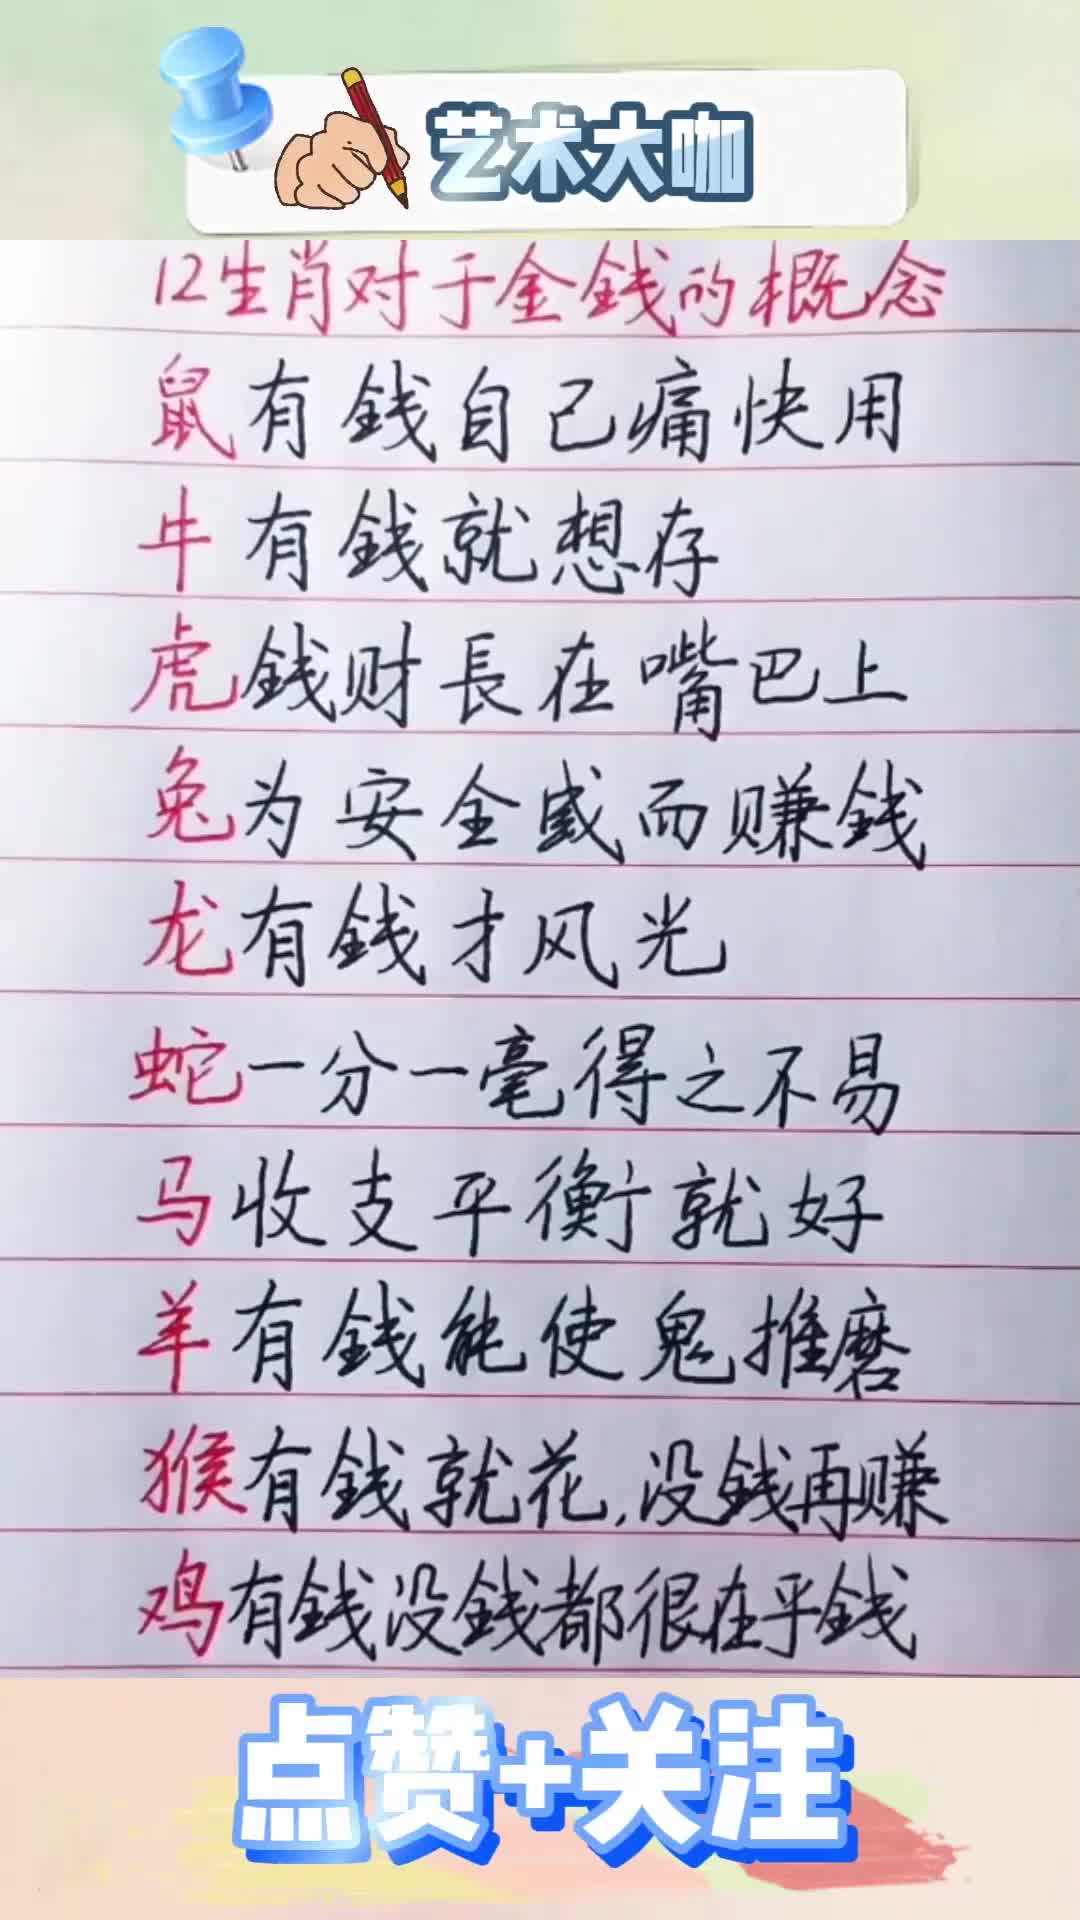 艺术大咖
12生肖对于金錢的概念
鼠有錢自己痛快用
牛有錢就想存
虎錢财長在嘴巴上
兔为安全感而赚錢
龙有錢才风光
蛇一分一毫得之不易
马收支平衡就好
羊有錢能使鬼推磨
猴有錢就花,没錢再赚
鸡有錢没錢都很在乎錢
点赞+关注